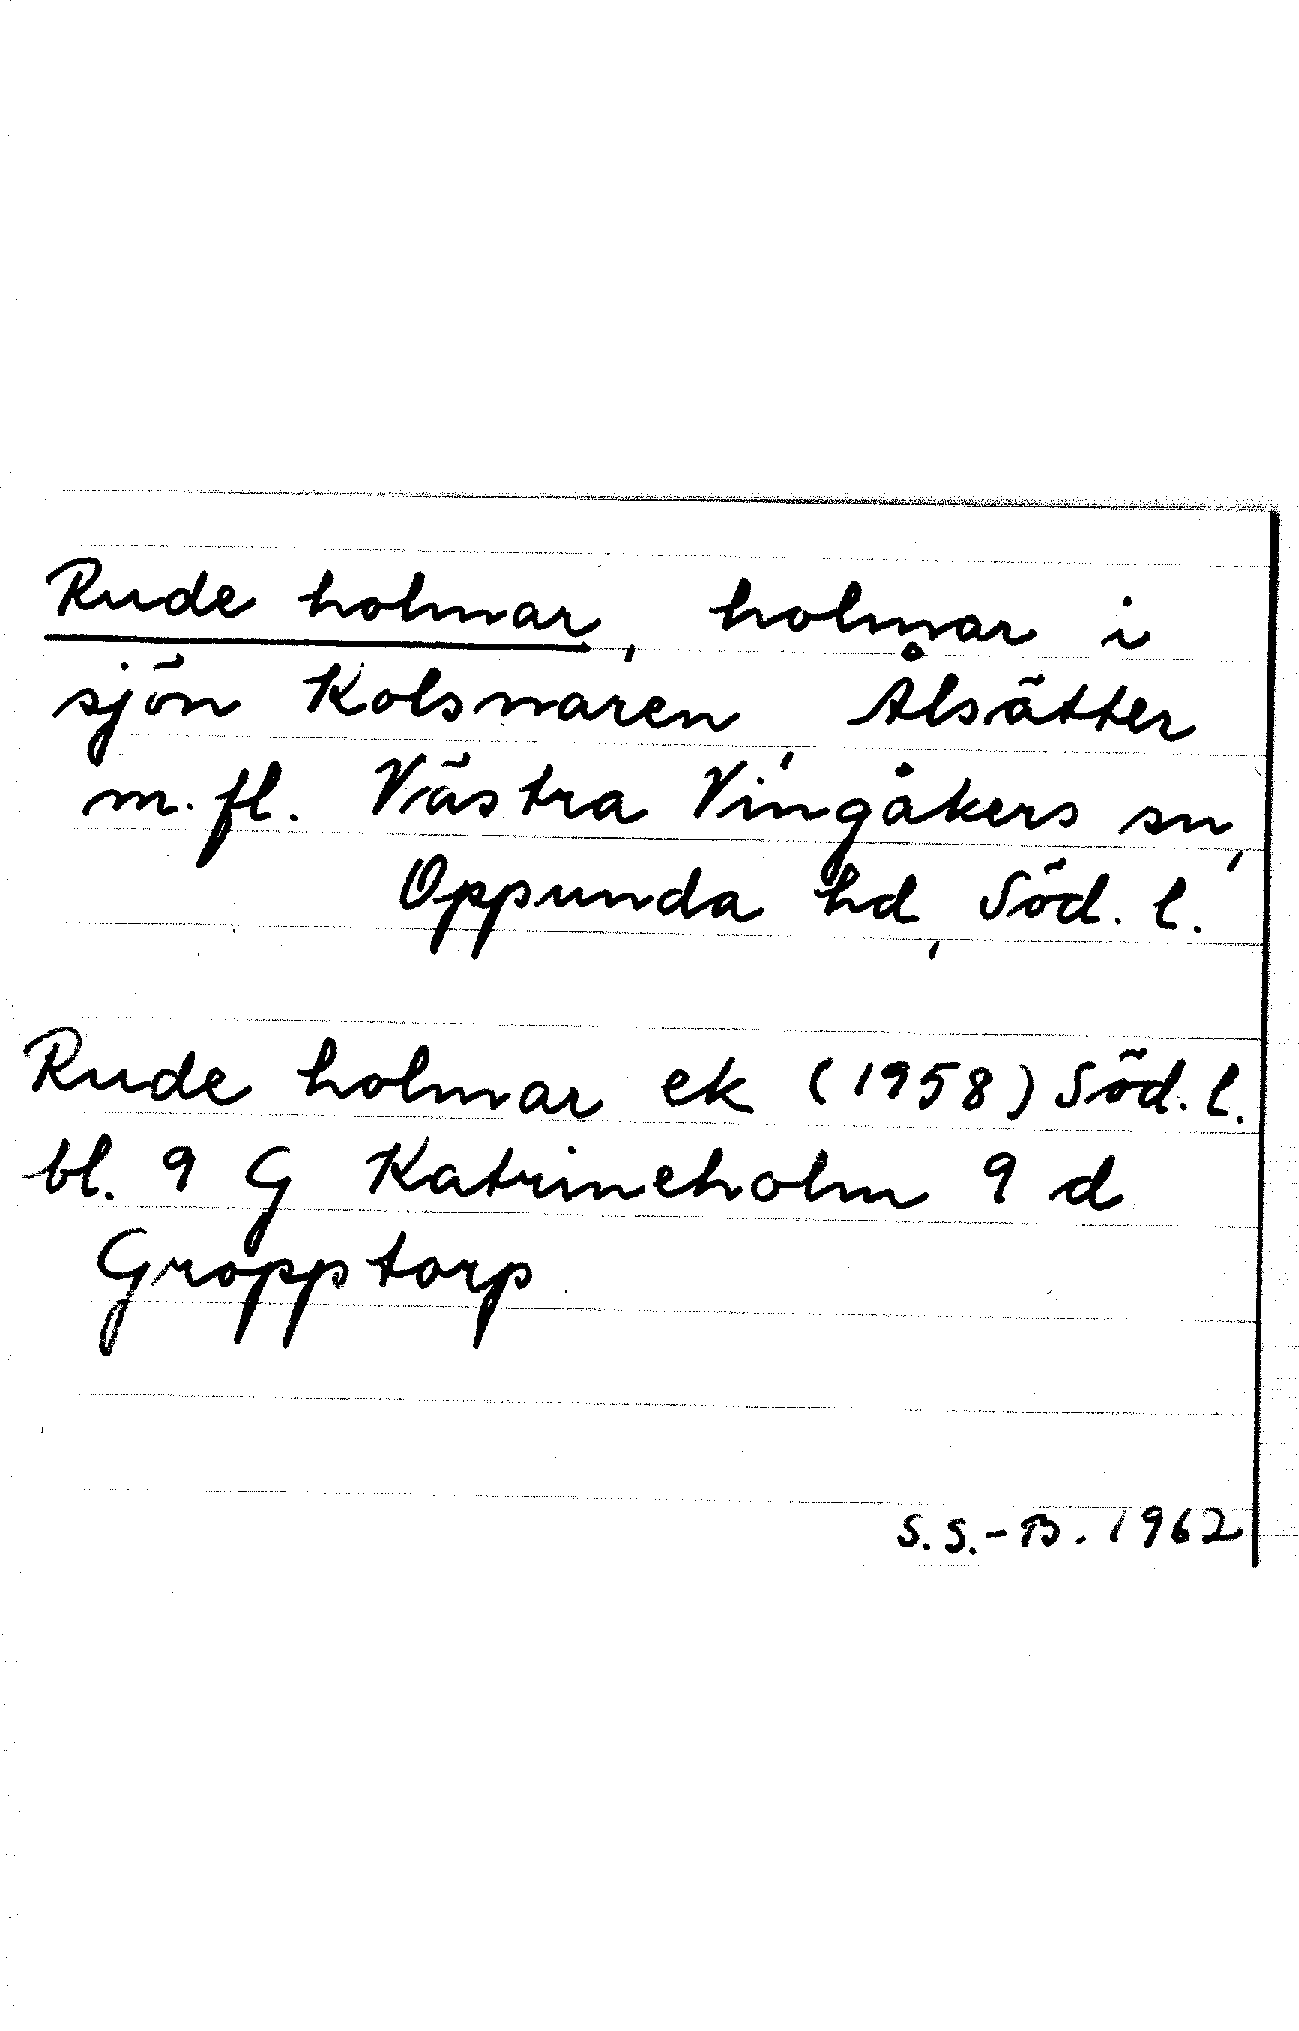 Rude holmar, holmar i
sjön Kolsnaren, Ålsätter
m.fl. Västra Vingåkers sn,
Oppunda hd, Söd. l.
Rude holmar ek (1958) Söd. l.
bl. 9 G Katrineholm 9 d
Gropptorp
S. S.-B. 1962